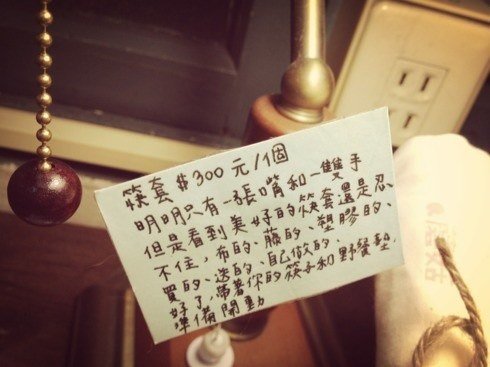 筷套 $300元/1個
明明只有一張嘴和一雙手
但是看到美好的筷套還是忍
不住，布的、藤的、塑膠的、
買的、送的、自己做的、
好了，帶著你的筷子和野餐墊，
準備開動